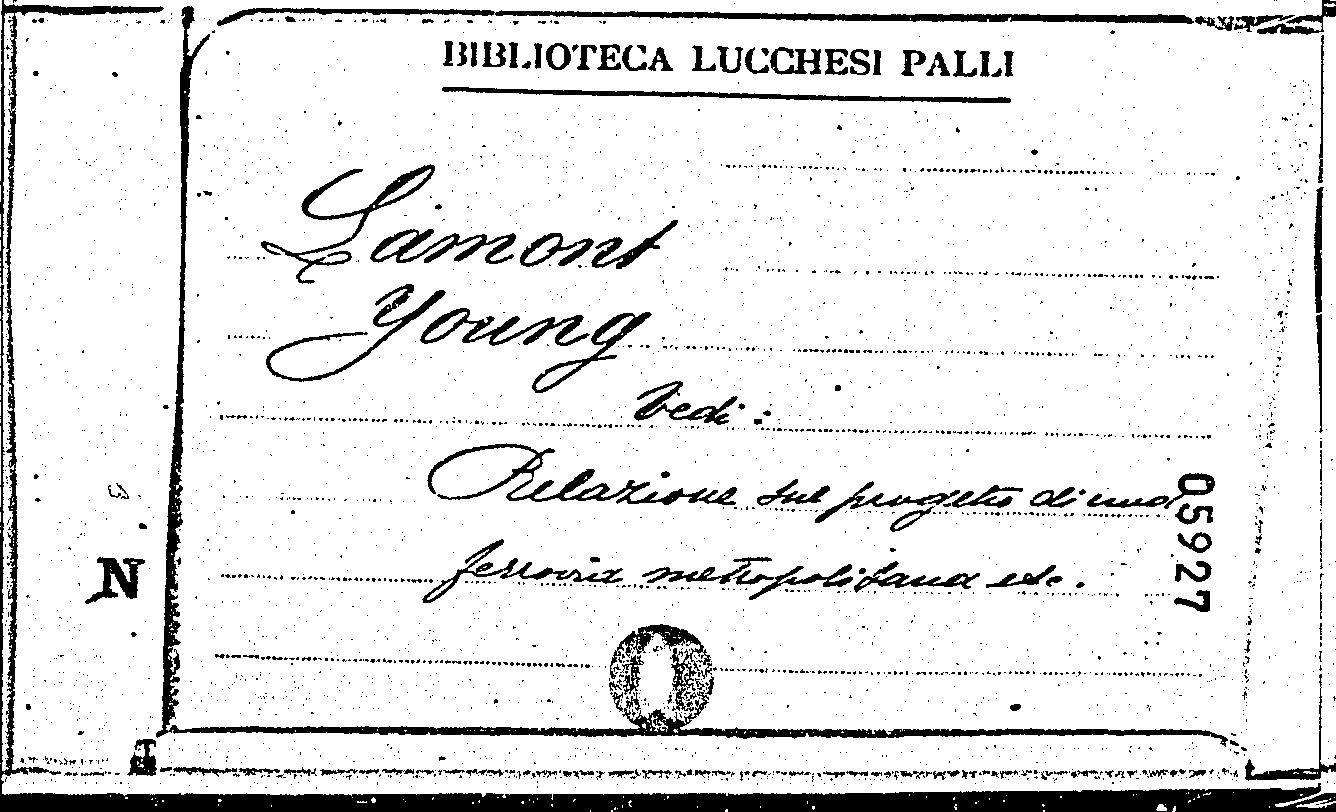 BIBLIOTECA LUCCHESI PALLI
Lamont
Young
Vedi:
Relazione sul progetto di una
ferrovia metropolitana etc.
05927
N